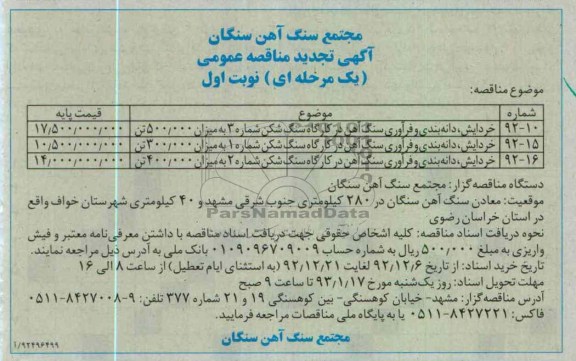 مجتمع سنگ آهن سنگان
آگهی تجدید مناقصه عمومی
( یک مرحله ای ) نوبت اول
موضوع مناقصه:
شماره موضوع قیمت پایه
۹۲-۱۰ خردایش، دانه‌بندی و فرآوری سنگ آهن در کارگاه سنگ شکن شماره ۳ به میزان ۵۰۰/۰۰۰ تن ۱۷/۵۰۰/۰۰۰/۰۰۰
۹۲-۱۵ خردایش، دانه‌بندی و فرآوری سنگ آهن در کارگاه سنگ شکن شماره ۱ به میزان ۳۰۰/۰۰۰ تن ۱۰/۵۰۰/۰۰۰/۰۰۰
۹۲-۱۶ خردایش، دانه‌بندی و فرآوری سنگ آهن در کارگاه سنگ شکن شماره ۲ به میزان ۴۰۰/۰۰۰ تن ۱۴/۰۰۰/۰۰۰/۰۰۰
دستگاه مناقصه گزار: مجتمع سنگ آهن سنگان
موقعیت: معادن سنگ آهن سنگان در ۲۸۰ کیلومتری جنوب شرقی مشهد و ۴۰ کیلومتری شهرستان خواف واقع
در استان خراسان رضوی
ParsNamadData
نحوه دریافت اسناد مناقصه: کلیه اشخاص حقوقی جهت دریافت اسناد مناقصه با داشتن معرفی‌نامه معتبر و فیش
واریزی به مبلغ ۵۰۰/۰۰۰ ریال به شماره حساب ۰۱۰۹۰۹۶۷۰۹۰۰۹ بانک ملی به آدرس ذیل مراجعه نمایند.
تاریخ خرید اسناد: از تاریخ ۹۲/۱۲/۶ لغایت ۹۲/۱۲/۲۱ (به استثنای ایام تعطیل) از ساعت ۸ الی ۱۶
مهلت تحویل اسناد: روز یک‌شنبه مورخ ۹۳/۱/۱۷ تا ساعت ۹ صبح
آدرس مناقصه گزار: مشهد- خیابان کوهسنگی- بین کوهسنگی ۱۹ و ۲۱ شماره ۳۷۷ تلفن: ۹-۸۴۲۷۰۰۸-۰۵۱۱
فاکس: ۸۴۲۷۲۲۱-۰۵۱۱ یا به پایگاه ملی مناقصات مراجعه فرمایید.
مجتمع سنگ آهن سنگان
۱/۹۲۴۹۶۴۹۹